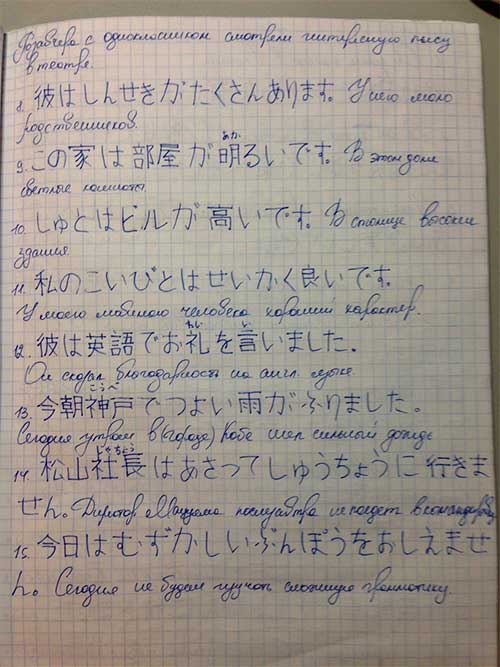 Позавчера с одноклассником смотрели интересную пьесу
в театре.
8. 彼はしんせきがたくさんあります。У него много
родственников.
9. この家は部屋が明るいです。В этом доме
あか
светлые комнаты
10. しゅとはビルが高いです。В столице высокие
здания.
11. 私のこいびとはせいかく良いです。
У моего любимого человека хороший характер.
12. 彼は英語でお礼を言いました。
れい い
Он сказал благодарность на англ. языке.
こうべ
13. 今朝神戸でつよい雨がふりました。
Сегодня утром в (городе) Кобе шел сильный дождь
14. 松山社長はあさってしゅうちょうに行きま
せん。Директор Мацуяма послезавтра не поедет в командировку
15. 今日はむずかしいぶんぽうをおしえませ
ん。Сегодня не будем изучать сложную грамматику.